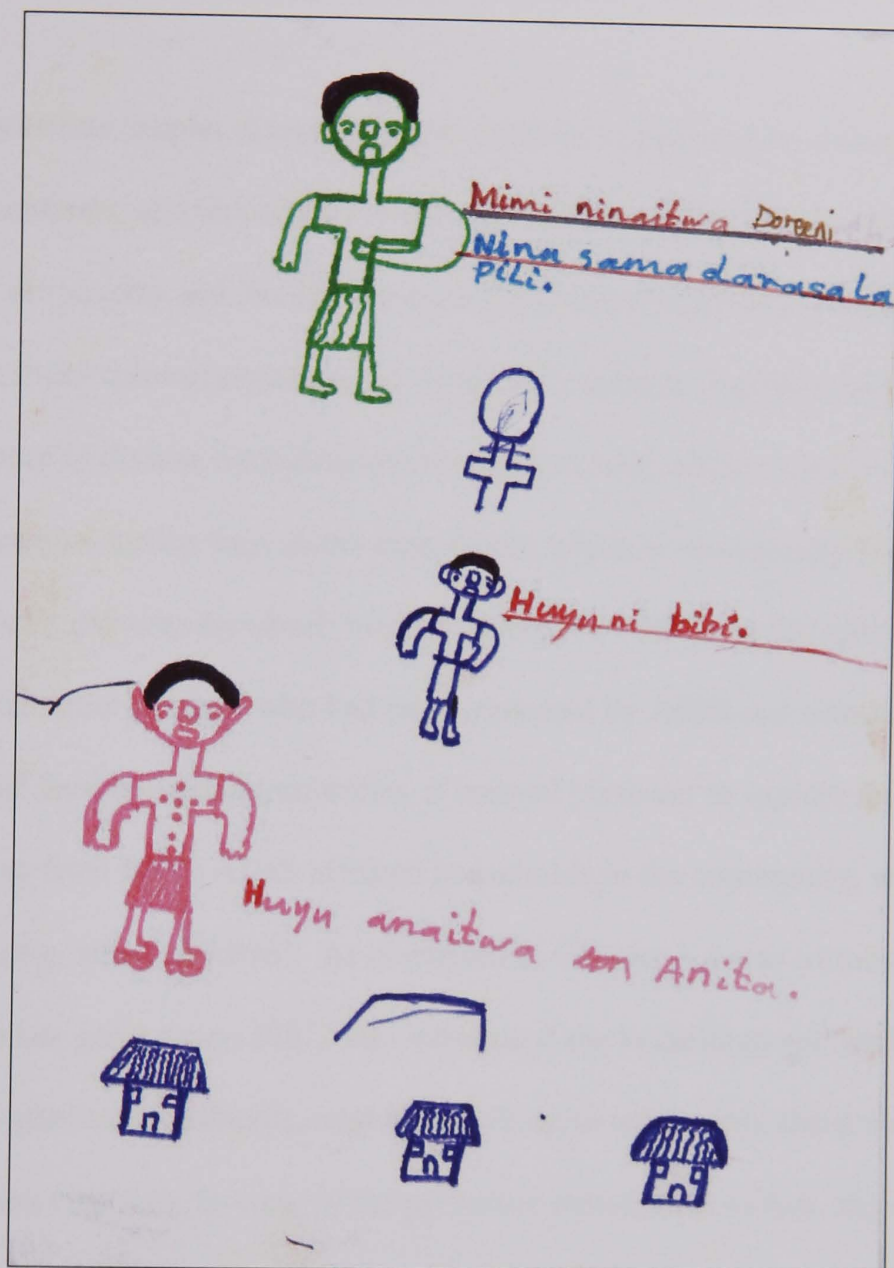 Mimi ninaitwa Doreeni
Nina sama darasa la
pili.
Huyu ni bibi.
Huyu anaitwa Anita.